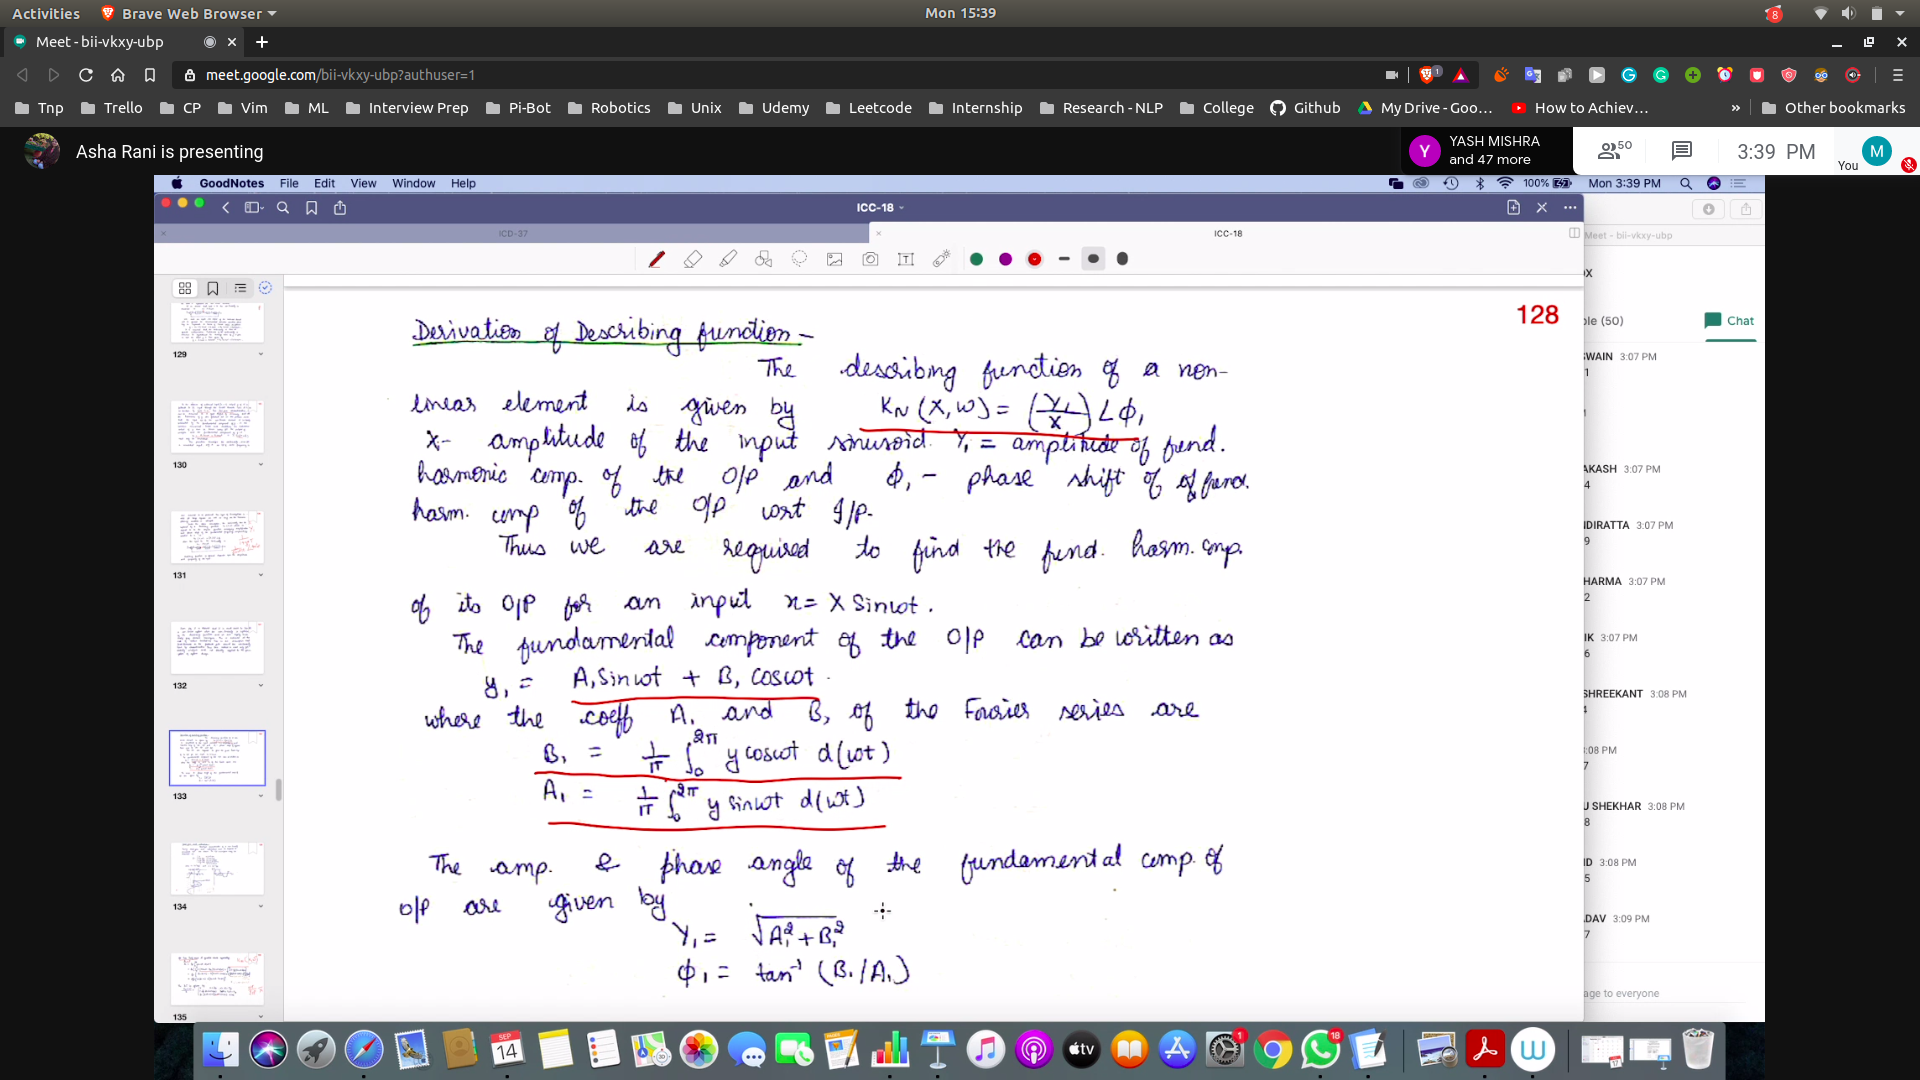 Activities
Brave Web Browser
Mon 15:39
8
Meet - bii-vkxy-ubp
meet.google.com/bii-vkxy-ubp?authuser=1
1
Tnp
Trello
CP
Vim
ML
Interview Prep
Pi-Bot
Robotics
Unix
Udemy
Leetcode
Internship
Research - NLP
College
Github
My Drive - Goo...
How to Achiev...
»
Other bookmarks
Asha Rani is presenting
Y
YASH MISHRA
and 47 more
50
3:39 PM
You
M
GoodNotes File Edit View Window Help
100%
Mon 3:39 PM
ICC-18
ICD-37
ICC-18
Meet - bii-vkxy-ubp
128
Derivation of Describing function -
The describing function of a non-
linear element is given by KN (X, ω) = (Y1/X) ∠ϕ1
X- amplitude of the input sinusoid. Y1 = amplitude of fund.
harmonic comp. of the O/P and ϕ1 - phase shift of of fund.
harm. comp of the O/P wrt I/P.
Thus we are required to find the fund. harm. cmp.
of its O/P for an input x = X Sinωt.
The fundamental component of the O/P can be written as
y1 = A1 Sinωt + B1 cosωt.
where the coeff A1 and B1 of the Fourier series are
B1 = 1/π ∫0^2π y cosωt d(ωt)
A1 = 1/π ∫0^2π y sinωt d(ωt)
The amp. & phase angle of the fundamental comp. of
O/P are given by
Y1 = √A1² + B1²
ϕ1 = tan⁻¹ (B1/A1)
129
130
131
132
133
134
135
ple (50)
Chat
SWAIN 3:07 PM
1
AKASH 3:07 PM
4
NDIRATTA 3:07 PM
9
HARMA 3:07 PM
2
IK 3:07 PM
6
SHREEKANT 3:08 PM
4
:08 PM
7
U SHEKHAR 3:08 PM
8
ID 3:08 PM
5
DAV 3:09 PM
7
age to everyone
SEP
14
tv
1
18